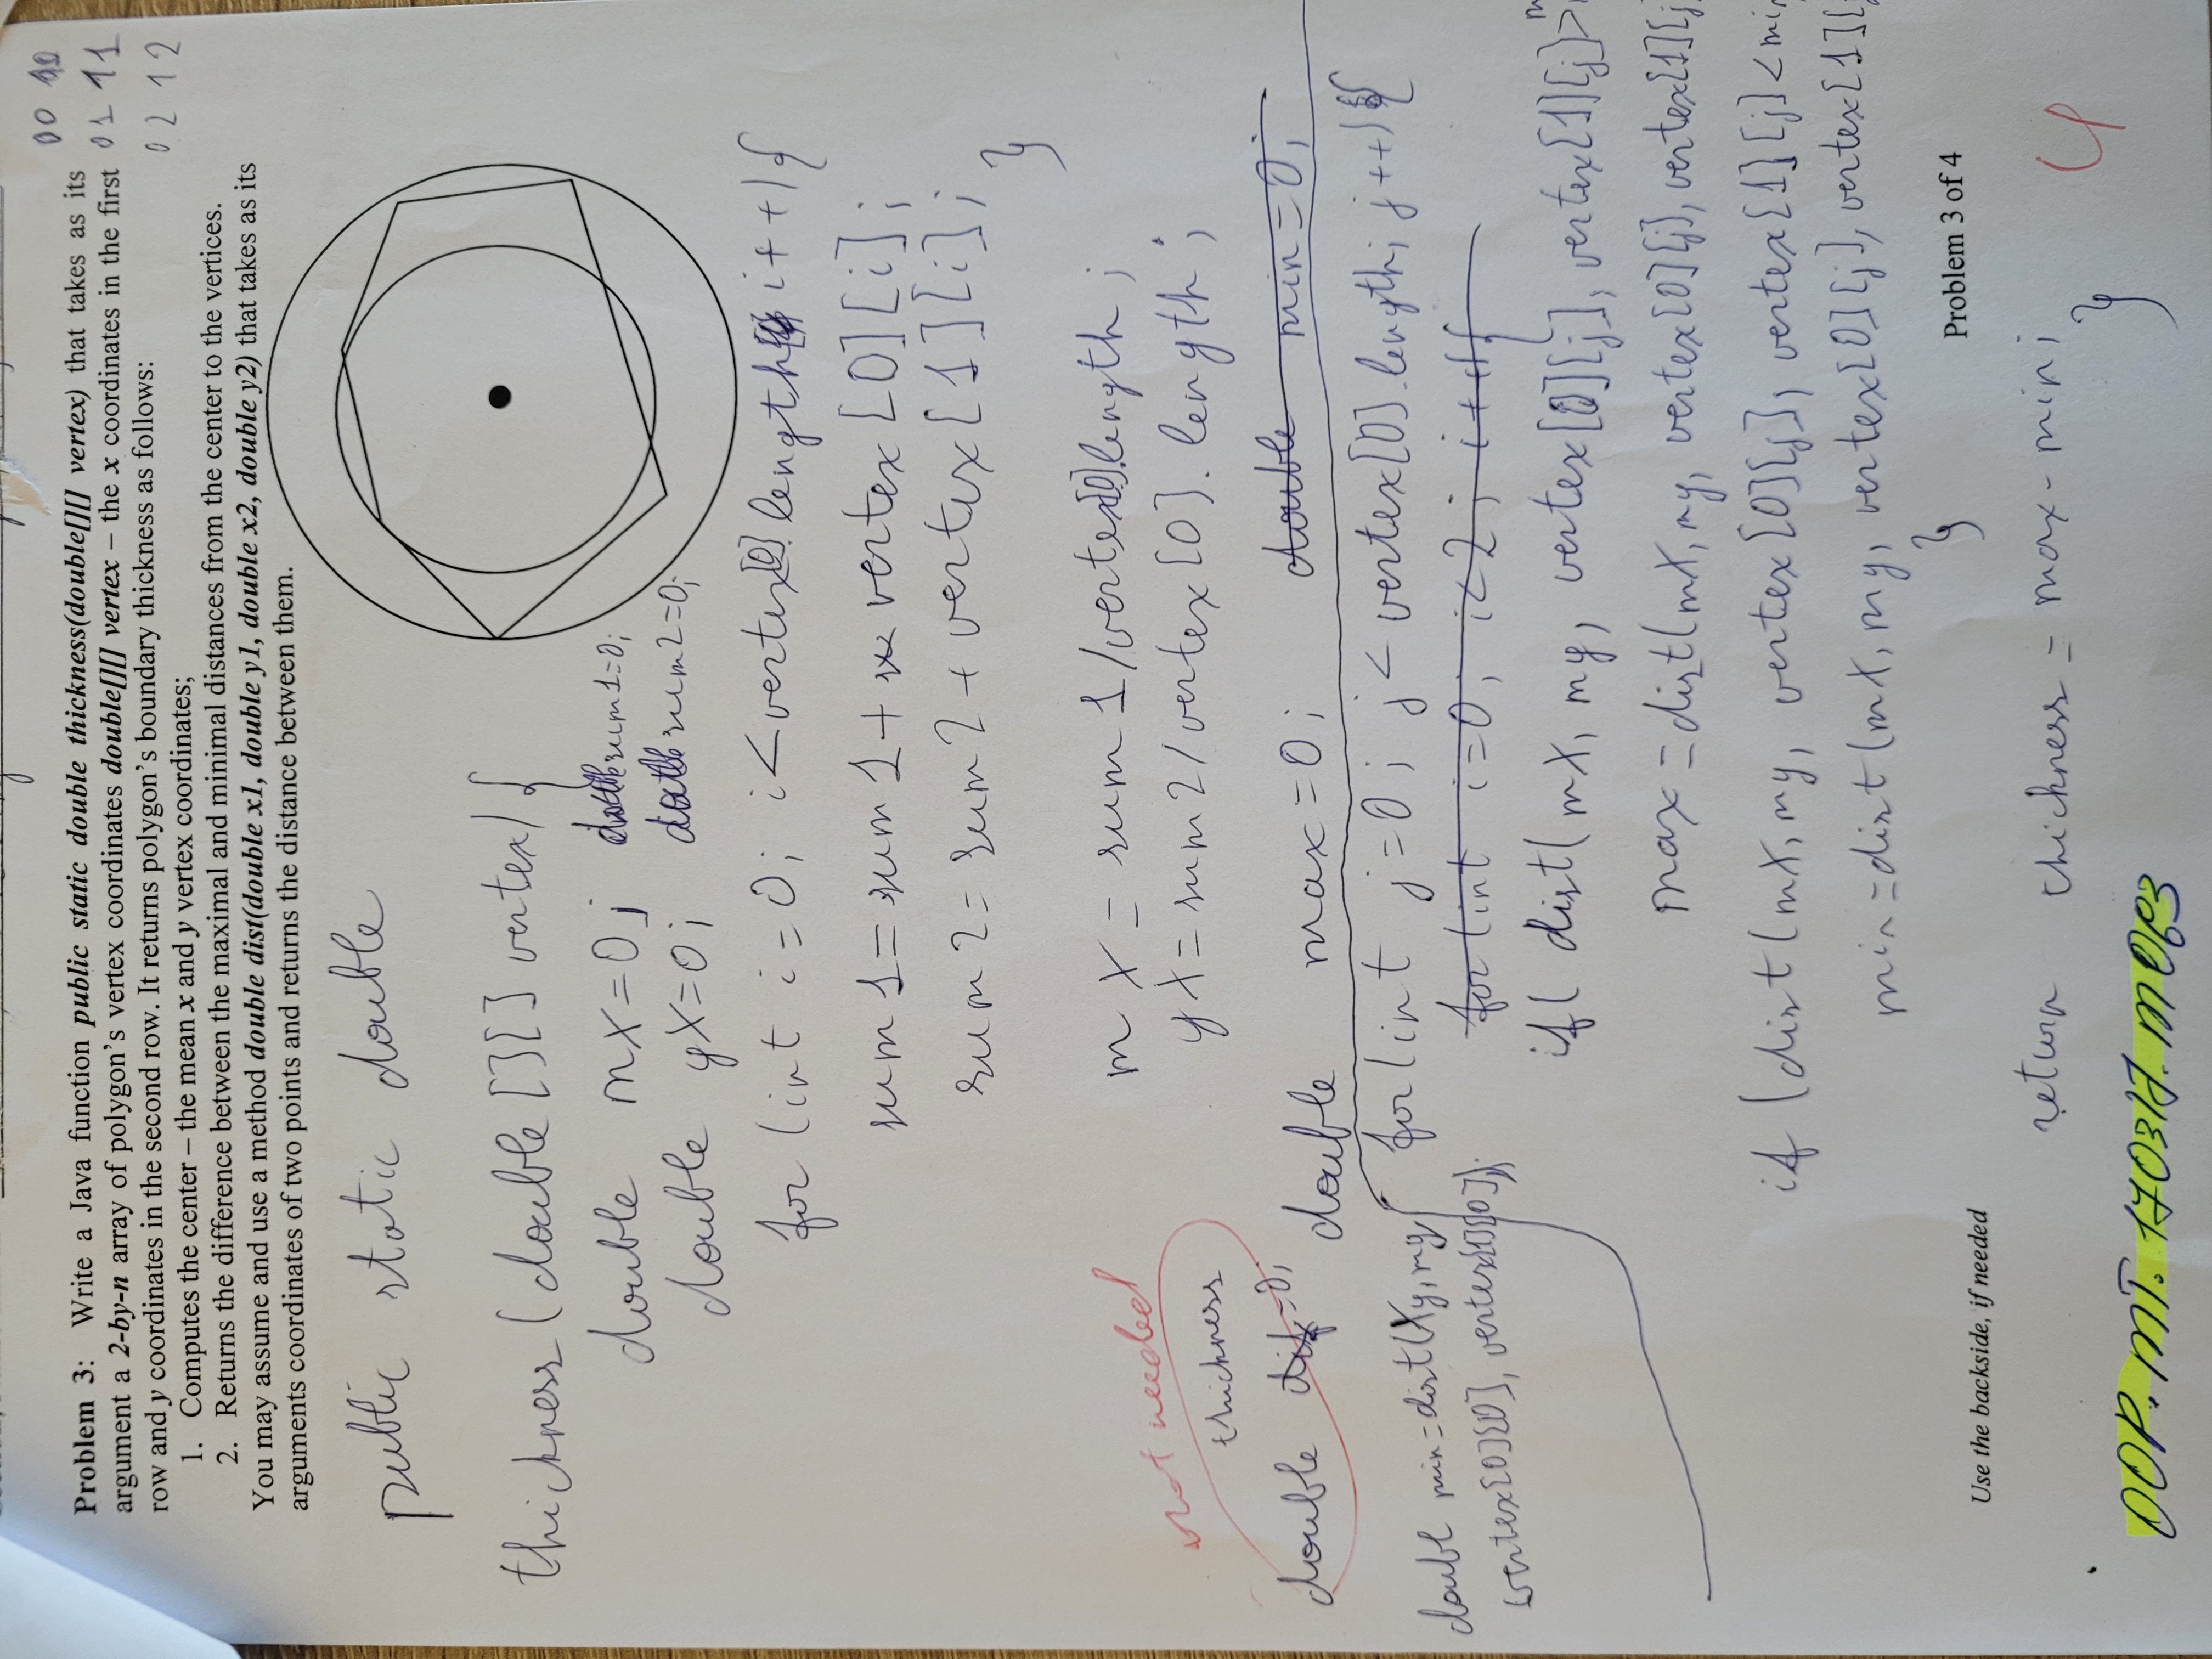 00 10
Problem 3: Write a Java function public static double thickness(double[][] vertex) that takes as its
01 11
argument a 2-by-n array of polygon's vertex coordinates double[][] vertex – the x coordinates in the first
row and y coordinates in the second row. It returns polygon's boundary thickness as follows:
02 12
1. Computes the center – the mean x and y vertex coordinates;
2. Returns the difference between the maximal and minimal distances from the center to the vertices.
You may assume and use a method double dist(double x1, double y1, double x2, double y2) that takes as its
arguments coordinates of two points and returns the distance between them.
public static double
thickness (double [][] vertex) {
double mX=0; double sum1=0;
double yX=0; double sum2=0;
for (int i=0; i<vertex[0].length; i++) {
sum1=sum1+ vertex [0][i];
sum2=sum2+vertex[1][i];
}
mX = sum1/vertex[0].length;
yX=sum2/vertex[0].length;
not needed
thickness
double dif=0;
double max=0; double min=0;
for(int j=0; j<vertex[0].length; j++) {
double min=dist(Xy, my
vertex[0][0], vertex[1][0]);
for(int i=0; i<2; i++){
if( dist(mX, my, vertex[0][j], vertex[1][j]>m
max=dist(mX, my, vertex[0][j], vertex[1][j
if (dist(mX, my, vertex[0][j], vertex[1][j]<min
min=dist(mX, my, vertex[0][j], vertex[1][
}
Problem 3 of 4
Use the backside, if needed
return thickness = max-min;
}
4
OOP.MT.170317.M063